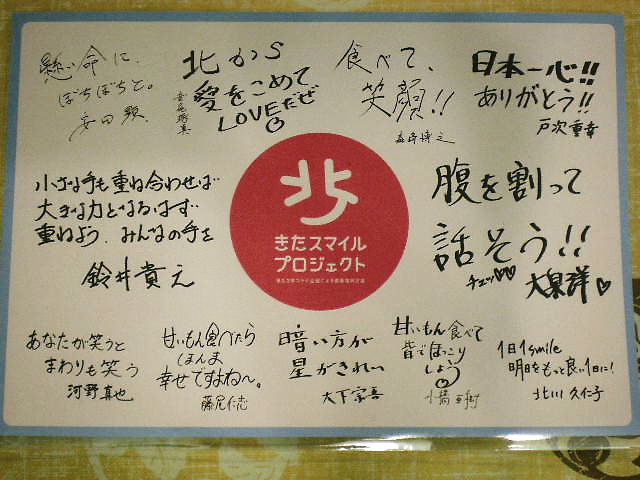 懸命に、
ぼちぼちと。
安田顕
北から
愛をこめて
LOVEだぜ
音尾琢真
食べて、
笑顔!!
森崎博之
日本一心!!
ありがとう!!
戸次重幸
小さな手も重ね合わせば
大きな力となるはず
重ねよう、みんなの手を
鈴井貴之
きたスマイル
プロジェクト
腹を割って
話そう!!
チェッ♡♡
大泉洋♡
あなたが笑うと
まわりも笑う
河野真也
甘いもん食べたら
ほんま
幸せですよね〜。
藤尾仁志
暗い方が
星がきれい
大下宗吾
甘いもん食べて
皆でほっこり
しよう
小橋亜樹
1日1smile
明日をもっと良い1日に!
北川久仁子